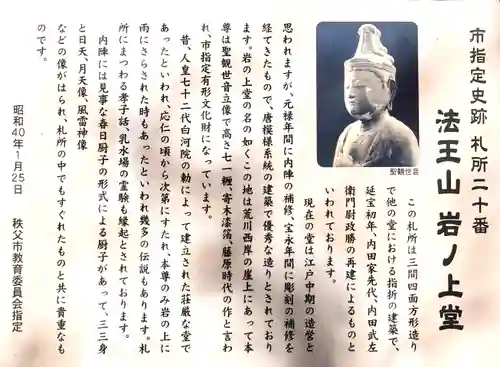 市指定史跡 札所二十番
法王山 岩ノ上堂
聖観世音
この札所は三間四面方形造り
で他の堂における指折の建築で、
延宝初年、内田家先代、内田武左
衛門尉政勝の再建によるものと
いわれております。
現在の堂は江戸中期の造営と
思われますが、元禄年間に内陣の補修、宝永年間に彫刻の補修を
経てきたもので、唐模様系統の建築で優秀な造りとされており
ます。岩の上堂の名の如くこの地は荒川西岸の崖上にあって本
尊は聖観世音立像で高さ七一糎、寄木漆箔、藤原時代の作と言わ
れ、市指定有形文化財になっています。
昔、人皇七十二代白河院の勅によって建立された荘厳な堂で
あったといわれ、応仁の頃から次第にすたれ、本尊のみ岩の上に
雨にさらされた時もあったといわれ幾多の伝説もあります。札
所にまつわる孝子話、乳水場の霊験も縁起とされております。
内陣には見事な春日厨子の形式による厨子があって、三三身
と日天、月天像、風雷神像
などの像がはられ、札所の中でもすぐれたものと共に貴重なも
のです。
昭和40年1月25日 秩父市教育委員会指定